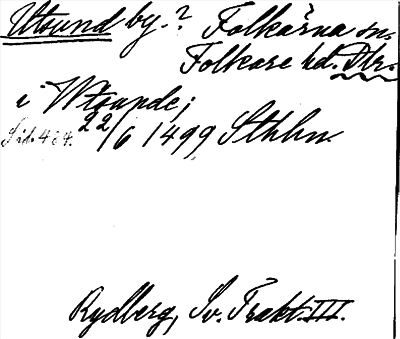 Utsund by.? Folkärna sn.
Folkare hd. Dlr.
i Wtsunde;
Sid. 424. 22/6 1499 Sthlm.
Rydberg, Sv. Trakt. III.